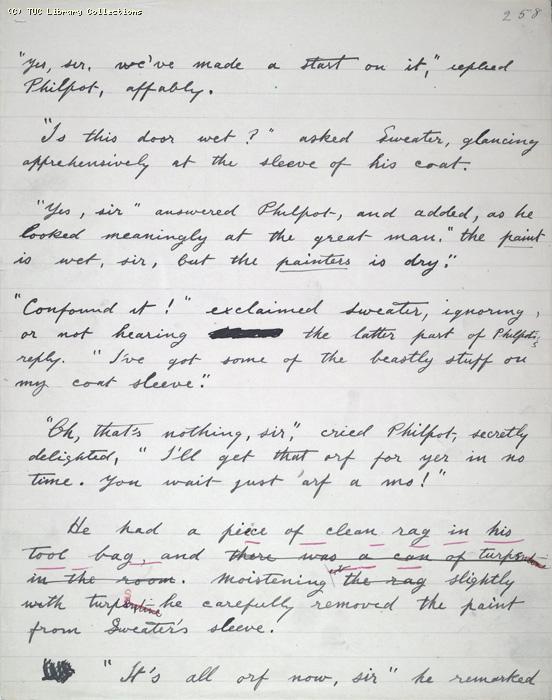 (C) TUC Library Collections
258
"Yes, sir. we've made a start on it," replied
Philpot, affably.
"Is this door wet?" asked Sweater, glancing
apprehensively at the sleeve of his coat.
"Yes, sir" answered Philpot, and added, as he
looked meaningly at the great man. "the paint
is wet, sir, but the painters is dry."
"Confound it!" exclaimed Sweater, ignoring,
or not hearing the latter part of Philpot's
reply. "I've got some of the beastly stuff on
my coat sleeve."
"Oh, that's nothing, sir," cried Philpot, secretly
delighted, "I'll get that orf for yer in no
time. You wait just 'arf a mo!"
He had a piece of clean rag in his
tool bag, and there was a can of turpentine
in the room. Moistening it the rag slightly
with turpentine he carefully removed the paint
from Sweater's sleeve.
"It's all orf now, sir" he remarked